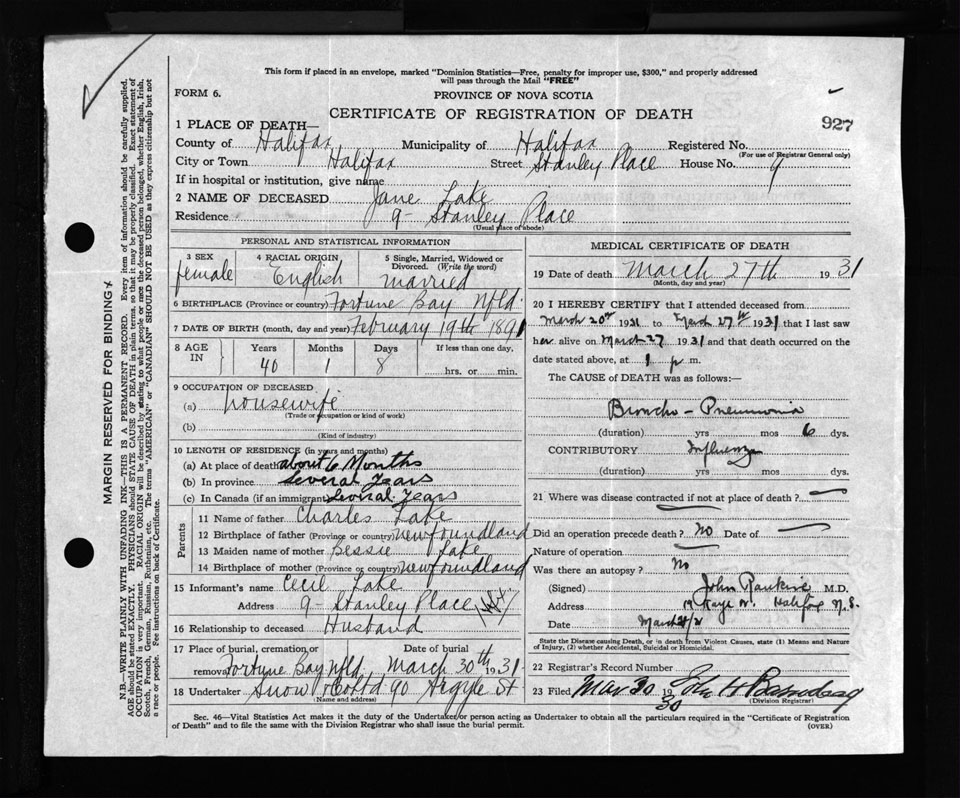 This form if placed in an envelope, marked "Dominion Statistics—Free, penalty for improper use, $300," and properly addressed
will pass through the Mail "FREE"
FORM 6.
PROVINCE OF NOVA SCOTIA
CERTIFICATE OF REGISTRATION OF DEATH
927
1 PLACE OF DEATH—
County of Halifax Municipality of Halifax Registered No.
(For use of Registrar General only)
City or Town Halifax Street Stanley Place House No. 9
If in hospital or institution, give name
2 NAME OF DECEASED Jane Lake
Residence 9 - Stanley Place
(Usual place of abode)
PERSONAL AND STATISTICAL INFORMATION
3 SEX female
4 RACIAL ORIGIN English
5 Single, Married, Widowed or Divorced. (Write the word) married
6 BIRTHPLACE (Province or country) Fortune Bay Nfld.
7 DATE OF BIRTH (month, day and year) February 19th 1891
8 AGE IN Years 40 Months 1 Days 8 If less than one day, hrs. or min.
9 OCCUPATION OF DECEASED
(a) housewife
(Trade or occupation or kind of work)
(b)
(Kind of industry)
10 LENGTH OF RESIDENCE (in years and months)
(a) At place of death about 6 Months
(b) In province Several Years
(c) In Canada (if an immigrant) Several Years
Parents
11 Name of father Charles Lake
12 Birthplace of father (Province or country) Newfoundland
13 Maiden name of mother Bessie Lake
14 Birthplace of mother (Province or country) Newfoundland
15 Informant's name Cecil Lake
Address 9 - Stanley Place
16 Relationship to deceased Husband
17 Place of burial, cremation or removal Fortune Bay Nfld. Date of burial March 30th 1931
18 Undertaker Snow & Co Ltd 90 Argyle St
(Name and address)
MEDICAL CERTIFICATE OF DEATH
19 Date of death March 27th 1931
(Month, day and year)
20 I HEREBY CERTIFY that I attended deceased from
March 20th 1931 to March 27th 1931 that I last saw
her alive on March 27 1931 and that death occurred on the
date stated above, at 1 p m.
The CAUSE of DEATH was as follows:—
Broncho-Pneumonia
(duration) yrs mos 6 dys.
CONTRIBUTORY Influenza
(duration) yrs mos dys.
21 Where was disease contracted if not at place of death? —
Did an operation precede death? No Date of —
Nature of operation —
Was there an autopsy? No
(Signed) John Rankine M.D.
Address Halifax N.S.
Date
State the Disease causing Death, or in death from Violent Causes, state (1) Means and Nature
of Injury, (2) whether Accidental, Suicidal or Homicidal.
22 Registrar's Record Number
23 Filed Mar 30 19 30 John H
(Division Registrar)
Sec. 46—Vital Statistics Act makes it the duty of the Undertaker or person acting as Undertaker to obtain all the particulars required in the "Certificate of Registration
of Death" and to file the same with the Division Registrar who shall issue the burial permit.
(OVER)
MARGIN RESERVED FOR BINDING
N.B.—WRITE PLAINLY WITH UNFADING INK—THIS IS A PERMANENT RECORD. Every item of information should be carefully supplied.
AGE should be stated EXACTLY. PHYSICIANS should STATE CAUSE OF DEATH in plain terms, so that it may be properly classified. Exact statement of
OCCUPATION is very important. RACIAL ORIGIN will be described by stating to what people or race the deceased person belonged, whether English, Irish,
Scotch, French, German, Russian, Ruthenian, etc. The terms "AMERICAN" or "CANADIAN" SHOULD NOT BE USED as they express citizenship but not
a race or people. See instructions on back of Certificate.